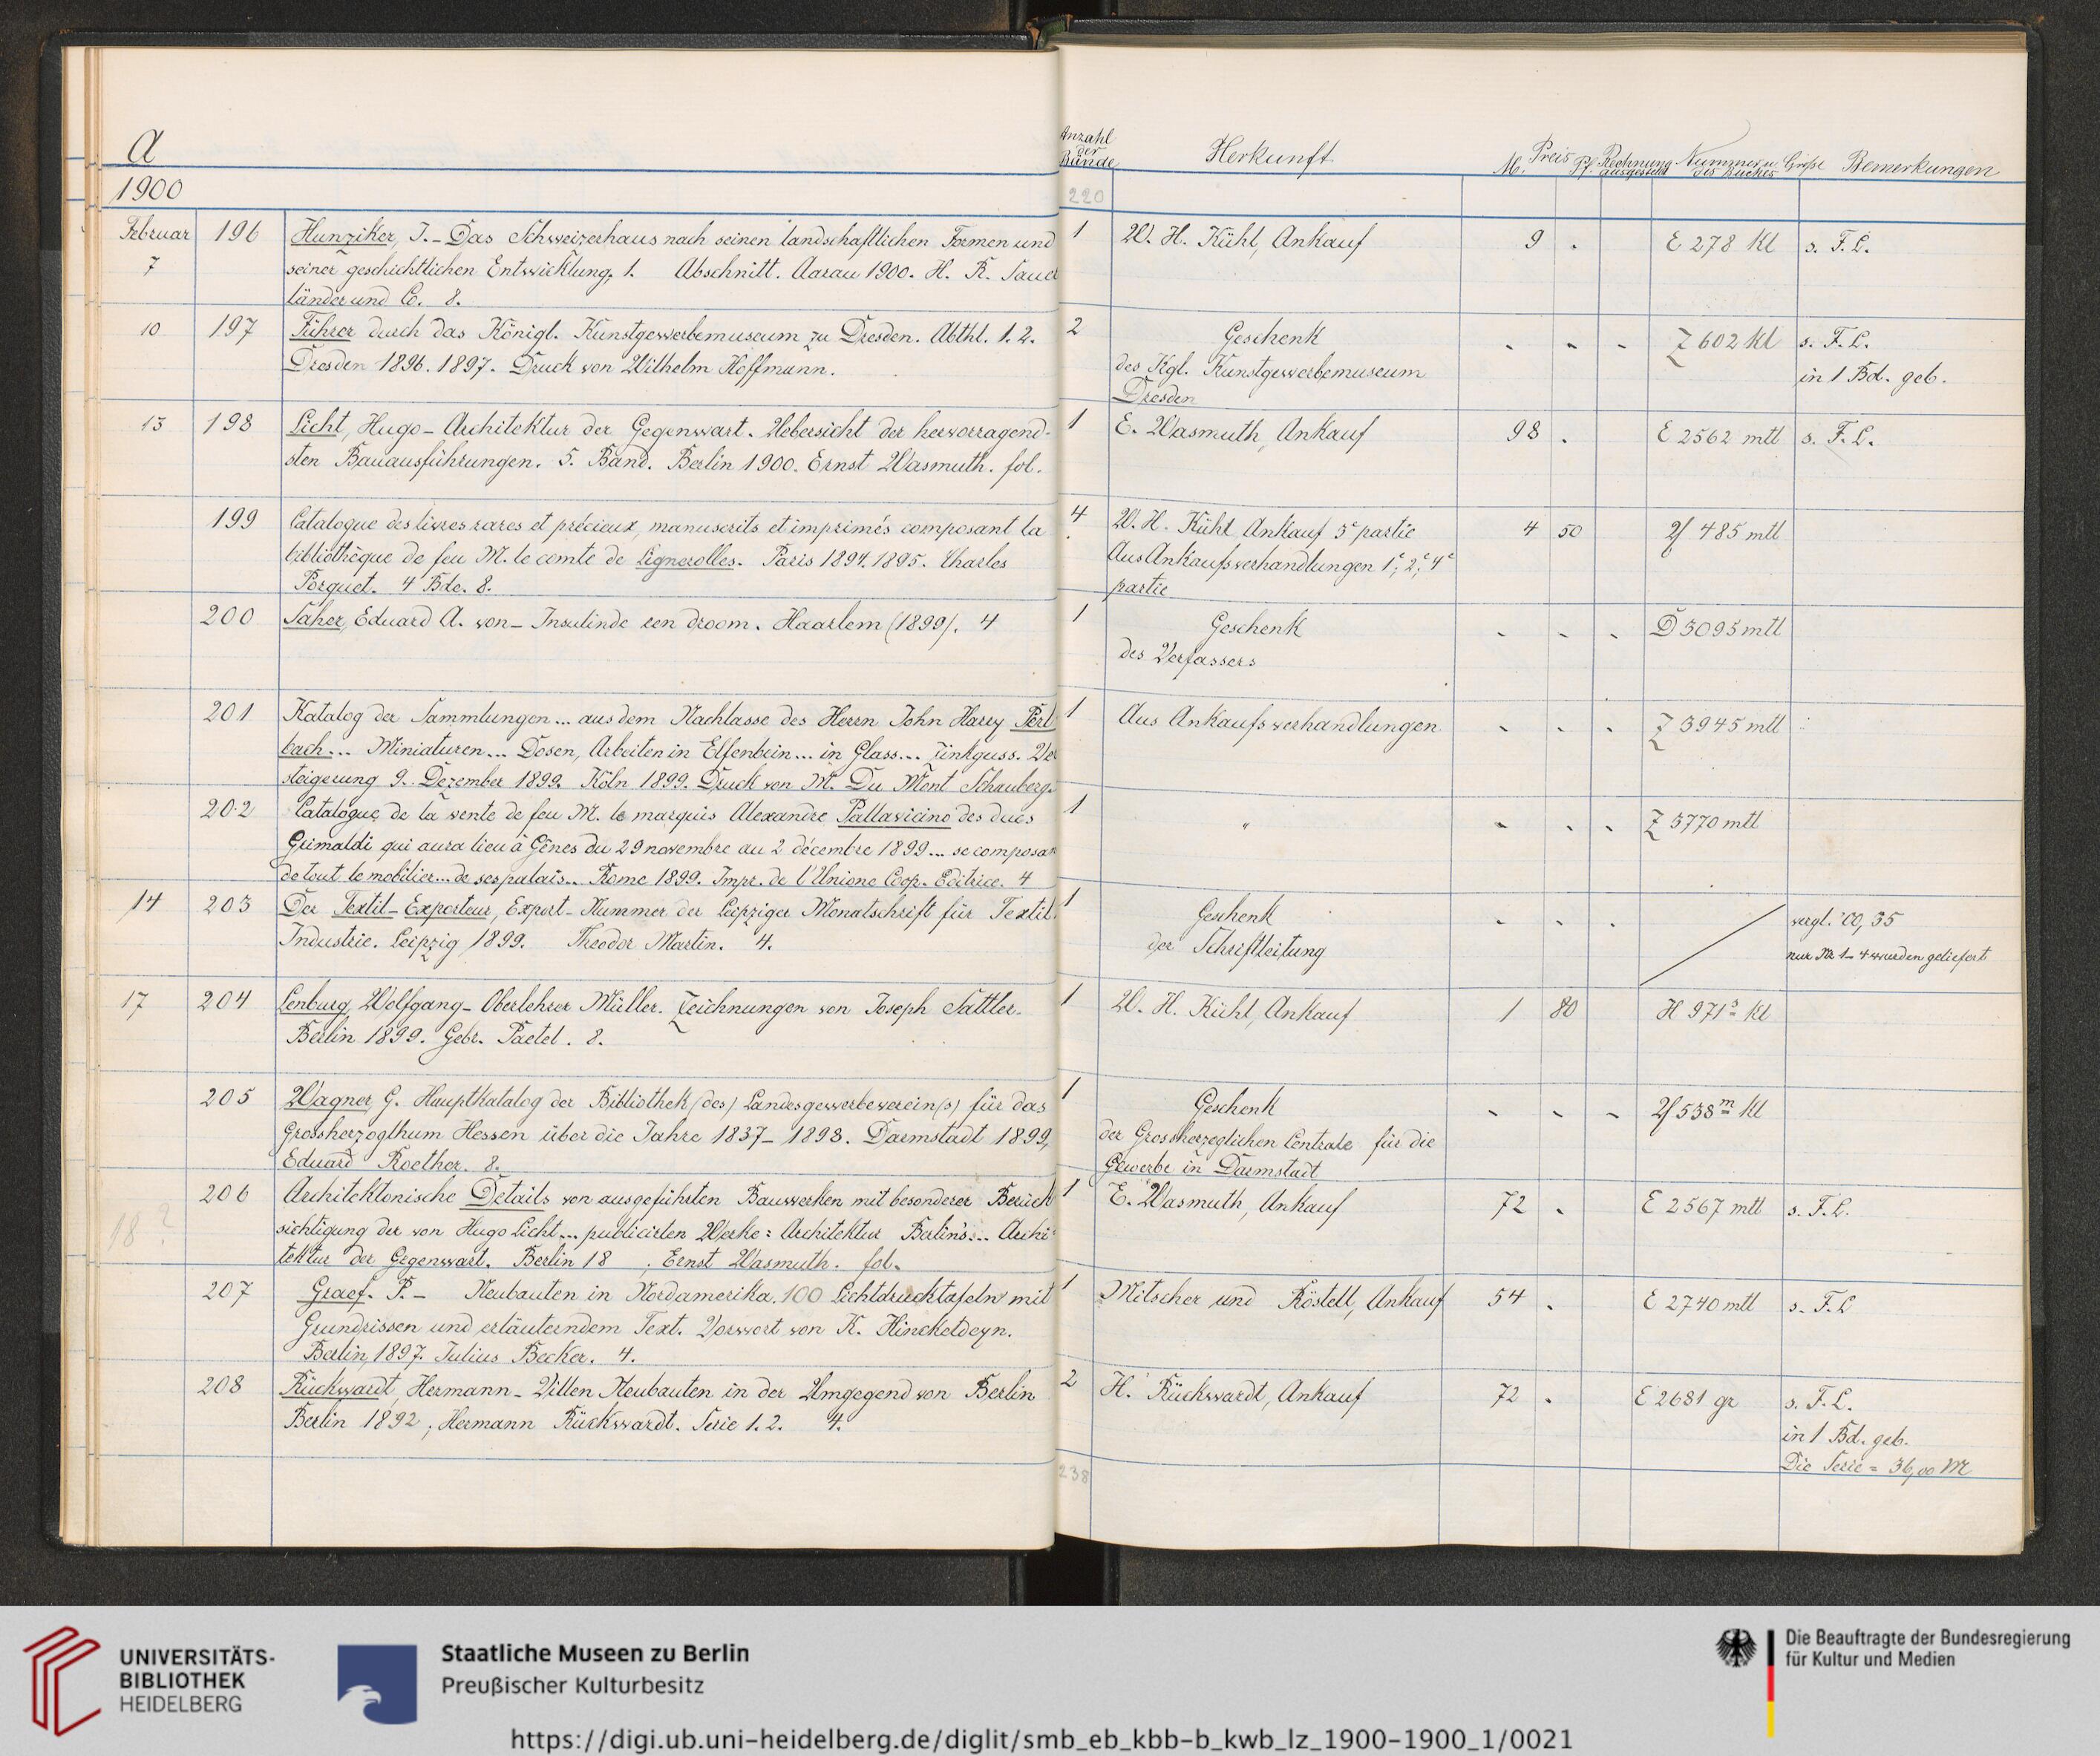 A
1900
Anzahl der Bände
Herkunft
Preis
M. Pf.
Rechnung ausgestellt
Nummer u. Größe des Buches
Bemerkungen
220
Februar 7 196 Hunziker, J. - Das Schweizerhaus nach seinen landschaftlichen Formen und
seiner geschichtlichen Entwicklung, 1. Abschnitt. Aarau 1900. H. R. Sauer
länder und Co. 8.
1 W. H. Kühl, Ankauf 9 . E 278 Kl s. F. L.
10 197 Führer durch das Königl. Kunstgewerbemuseum zu Dresden. Abthl. 1. 2.
Dresden 1896. 1897. Druck von Wilhelm Hoffmann.
2 Geschenk
des Kgl. Kunstgewerbemuseum
Dresden
- - - Z 602 Kl s. F. L.
in 1 Bd. geb.
13 198 Licht, Hugo - Architektur der Gegenwart. Uebersicht der hervorragend-
sten Bauausführungen. 5. Band. Berlin 1900. Ernst Wasmuth. fol.
1 E. Wasmuth, Ankauf 98 . E 2562 mtl s. F. L.
199 Catalogue des livres rares et précieux, manuscrits et imprimés composant la
bibliothèque de feu M. le comte de Lignerolles. Paris 1894. 1895. Charles
Porquet. 4 Bde. 8.
4 W. H. Kühl, Ankauf 3e partie
Aus Ankaufsverhandlungen 1e, 2e, 4e
partie
4 50 485 mtl
200 Saher, Eduard A. von - Insulinde een droom. Haarlem (1899). 4
1 Geschenk
des Verfassers
- - - D 5095 mtl
201 Katalog der Sammlungen ... aus dem Nachlasse des Herrn John Harry Perl
bach ... Miniaturen ... Dosen, Arbeiten in Elfenbein ... in Glass ... Zinkguss. Ver
steigerung 9. Dezember 1899. Köln 1899. Druck von M. Du Mont Schauberg.
1 Aus Ankaufsverhandlungen - - - Z 3945 mtl
202 Catalogue de la vente de feu M. le marquis Alexandre Pallavicino des ducs
Grimaldi qui aura lieu à Gênes du 29 novembre au 2 décembre 1899 ... se composan
de tout le mobilier ... de ses palais .. Rome 1899. Impr. de l'Unione Coop. Editrice. 4
1 " - - - Z 3770 mtl
14 203 Der Textil-Exporteur, Export-Nummer der Leipziger Monatschrift für Textil-
Industrie. Leipzig 1899. Theodor Martin. 4.
1 Geschenk
der Schriftleitung
- - - vergl. '00, 35
nur Nr 1-4 wurden geliefert
17 204 Lenburg, Wolfgang - Oberlehrer Müller. Zeichnungen von Joseph Sattler.
Berlin 1899. Gebr. Paetel. 8.
1 W. H. Kühl, Ankauf 1 80 H 971a Kl
205 Wagner, G. Hauptkatalog der Bibliothek (des) Landesgewerbeverein(s) für das
Grossherzogthum Hessen über die Jahre 1837-1898. Darmstadt 1899,
Eduard Roether. 8.
1 Geschenk
der Grossherzoglichen Centrale für die
Gewerbe in Darmstadt
- - - 538m Kl
18? 206 Architektonische Details von ausgeführten Bauwerken mit besonderer Berück
sichtigung der von Hugo Licht ... publicirten Werke: Architektur Berlins ... Archi
tektur der Gegenwart. Berlin 18 . Ernst Wasmuth. fol.
1 E. Wasmuth, Ankauf 72 . E 2567 mtl s. F. L.
207 Graef, P. - Neubauten in Nordamerika. 100 Lichtdrucktafeln mit
Grundrissen und erläuterndem Text. Vorwort von K. Hinckeldeyn.
Berlin 1897. Julius Becker. 4.
1 Mitscher und Röstell, Ankauf 54 . E 2740 mtl s. F. L
208 Rückwardt, Hermann - Villen Neubauten in der Umgegend von Berlin
Berlin 1892, Hermann Rückwardt. Serie 1. 2. 4.
2 H. Rückwardt, Ankauf 72 . E 2681 gr s. F. L.
in 1 Bd. geb.
Die Serie = 36,00 M
238
UNIVERSITÄTS-
BIBLIOTHEK
HEIDELBERG
Staatliche Museen zu Berlin
Preußischer Kulturbesitz
Die Beauftragte der Bundesregierung
für Kultur und Medien
https://digi.ub.uni-heidelberg.de/diglit/smb_eb_kbb-b_kwb_lz_1900-1900_1/0021